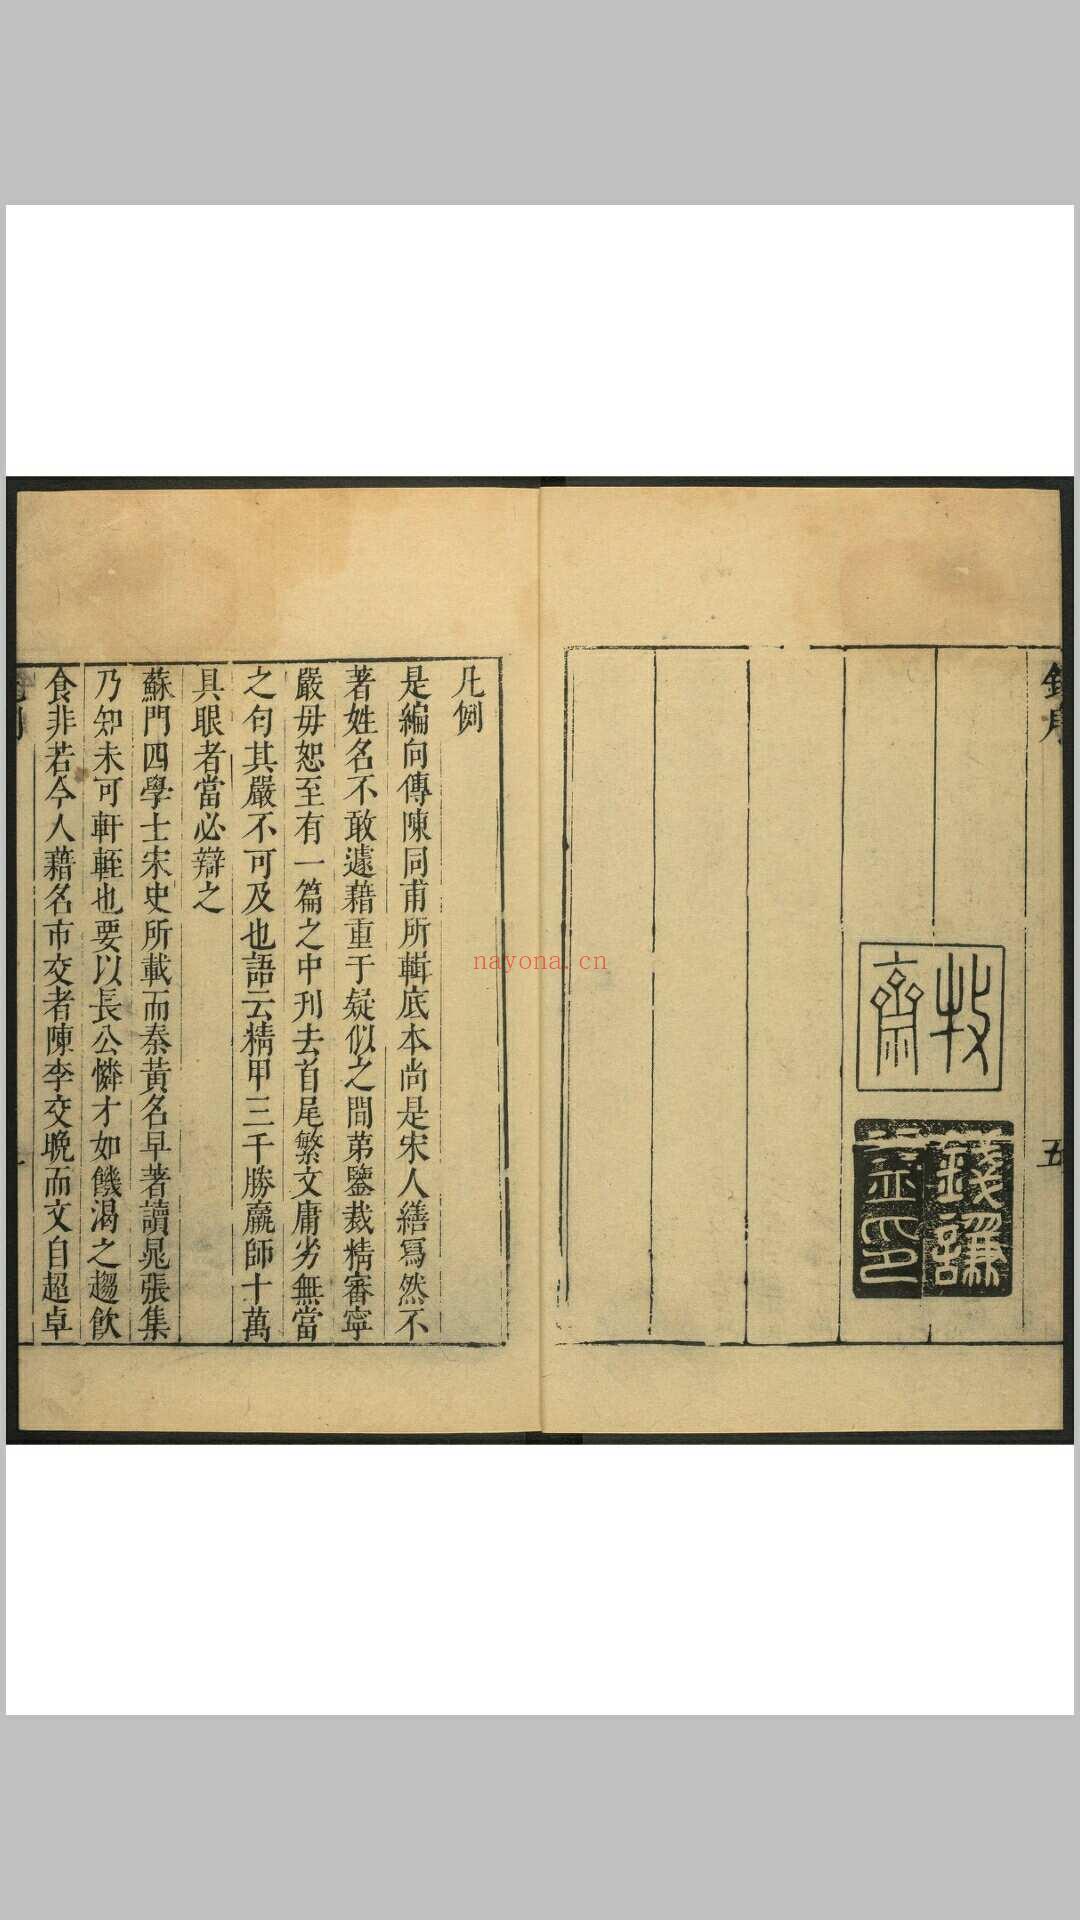 五
牧齋
錢謙
益印
凡例
是編向傳陳同甫所輯底本尚是宋人繕寫然不
著姓名不敢遽藉重于疑似之間苐鑒裁精審寧
嚴毋恕至有一篇之中刋去首尾繁文庸劣無當
之句其嚴不可及也語云精甲三千勝羸師十萬
具眼者當必辯之
蘇門四學士宋史所載而秦黃名早著讀晁張集
乃知未可軒輊也要以長公憐才如饑渴之趨飲
食非若今人藉名市交者陳李交晚而文自超卓
nayona.cn